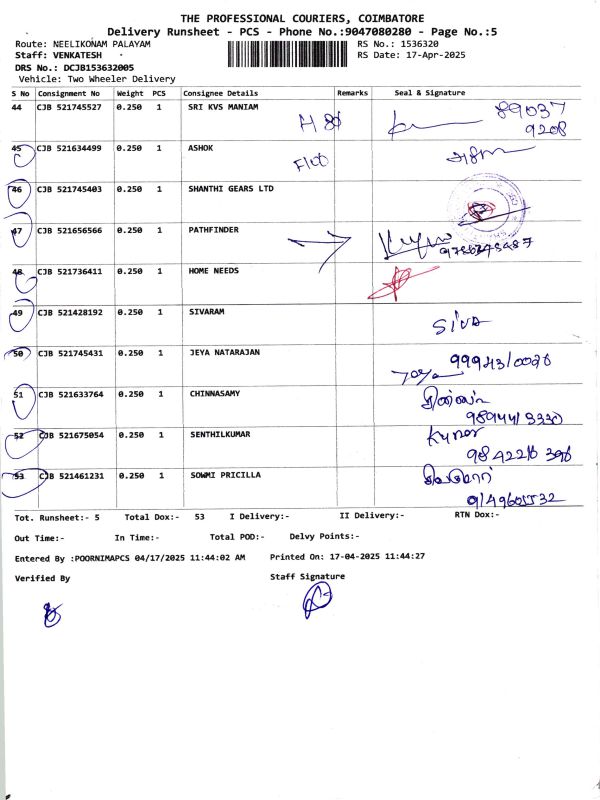 THE PROFESSIONAL COURIERS, COIMBATORE
Delivery Runsheet - PCS - Phone No.:9047080280 - Page No.:5
Route: NEELIKONAM PALAYAM RS No.: 1536320
Staff: VENKATESH RS Date: 17-Apr-2025
DRS No.: DCJB153632005
Vehicle: Two Wheeler Delivery
S No Consignment No Weight PCS Consignee Details Remarks Seal & Signature
44 CJB 521745527 0.250 1 SRI KVS MANIAM 89037
9208
45 CJB 521634499 0.250 1 ASHOK
46 CJB 521745403 0.250 1 SHANTHI GEARS LTD
47 CJB 521656566 0.250 1 PATHFINDER
48 CJB 521736411 0.250 1 HOME NEEDS
49 CJB 521428192 0.250 1 SIVARAM SIVA
50 CJB 521745431 0.250 1 JEYA NATARAJAN
51 CJB 521633764 0.250 1 CHINNASAMY
52 CJB 521675054 0.250 1 SENTHILKUMAR
53 CJB 521461231 0.250 1 SOWMI PRICILLA
Tot. Runsheet:- 5 Total Dox:- 53 I Delivery:- II Delivery:- RTN Dox:-
Out Time:- In Time:- Total POD:- Delvy Points:-
Entered By :POORNIMAPCS 04/17/2025 11:44:02 AM Printed On: 17-04-2025 11:44:27
Verified By Staff Signature